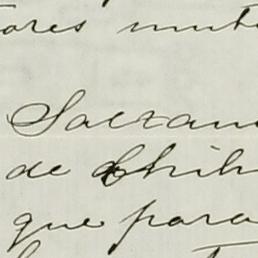 ores mut
Salzan
de Chih
que para